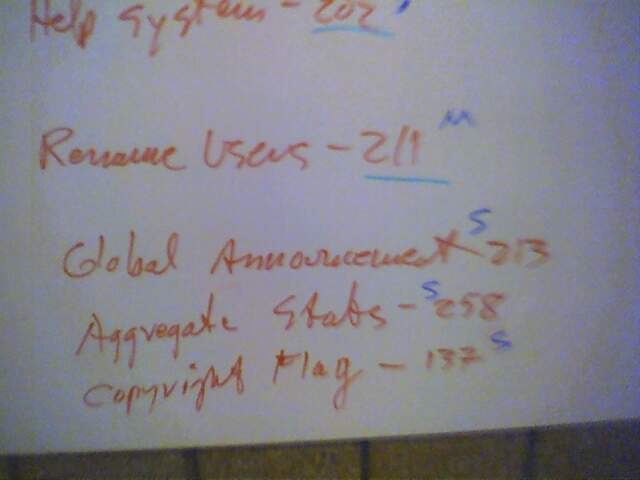 Help System - 202
Rename Users - 211 M
Global Announcement - S 213
Aggregate Stats - S 258
Copyright Flag - 137 S